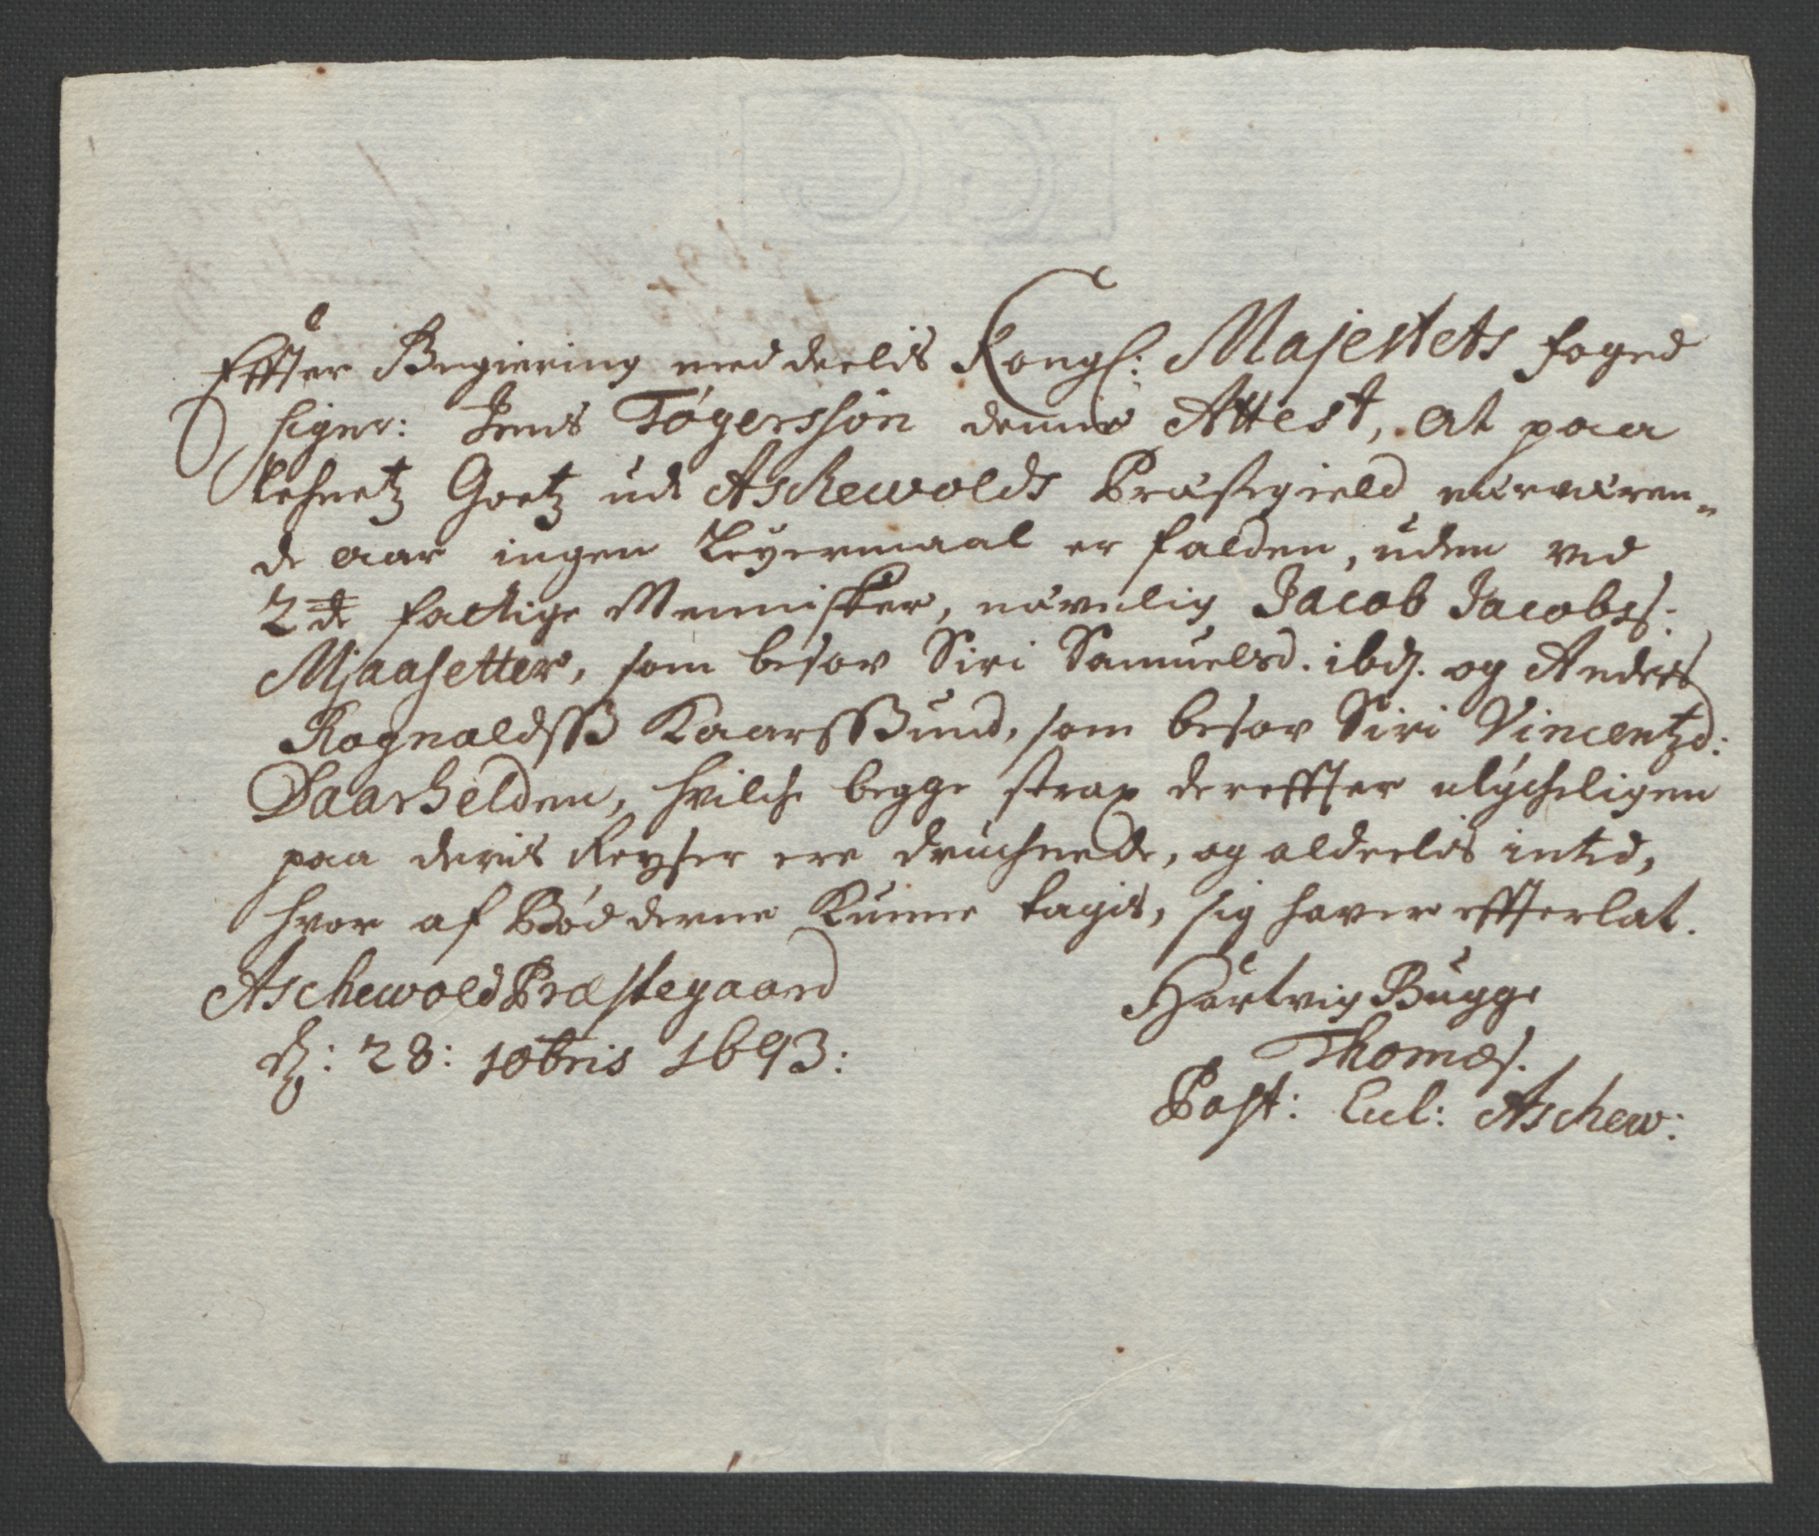 Effter Begiering meddeelis Kongl: Majestets foged
Signr: Jens Tøgerssøn denne Attest, at paa
Lehnetz Goetz udi Aschewolds Præstegield nærværen-
de aar ingen Leyermaal er falden, uden ved
2de fattige Mennisker, nævnlig Jacob Jacobss.
Mjaasetter, som besov Siri Samuelsd. ibd. og Anders
Rognaldsß Kaarsßund, som besov Siri Vincentzd:
Daarhelden, hvilche begge strax dereffter ulycheligen
paa deris Reyser ere druchnede, og aldeelis inted,
hvor af Bødderne kunne tagis, sig haver effterlat.
Aschewold Præstegaard
d: 28: 10bris 1693:
Hartvig Bugge
Thomæs.
Past: Eccl: Aschew: